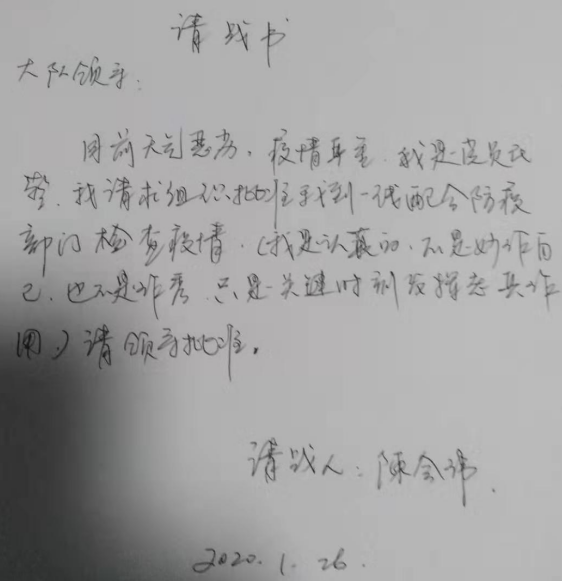 请战书
大队领导:
目前天气恶劣,疫情严重,我是党员民
警,我请求组织批准我到一线配合防疫
部门检查疫情,(我是认真的,不是炒作自
己,也不是作秀,只是关键时刻发挥党员作
用,)请领导批准。
请战人:陈会
2020.1.26.